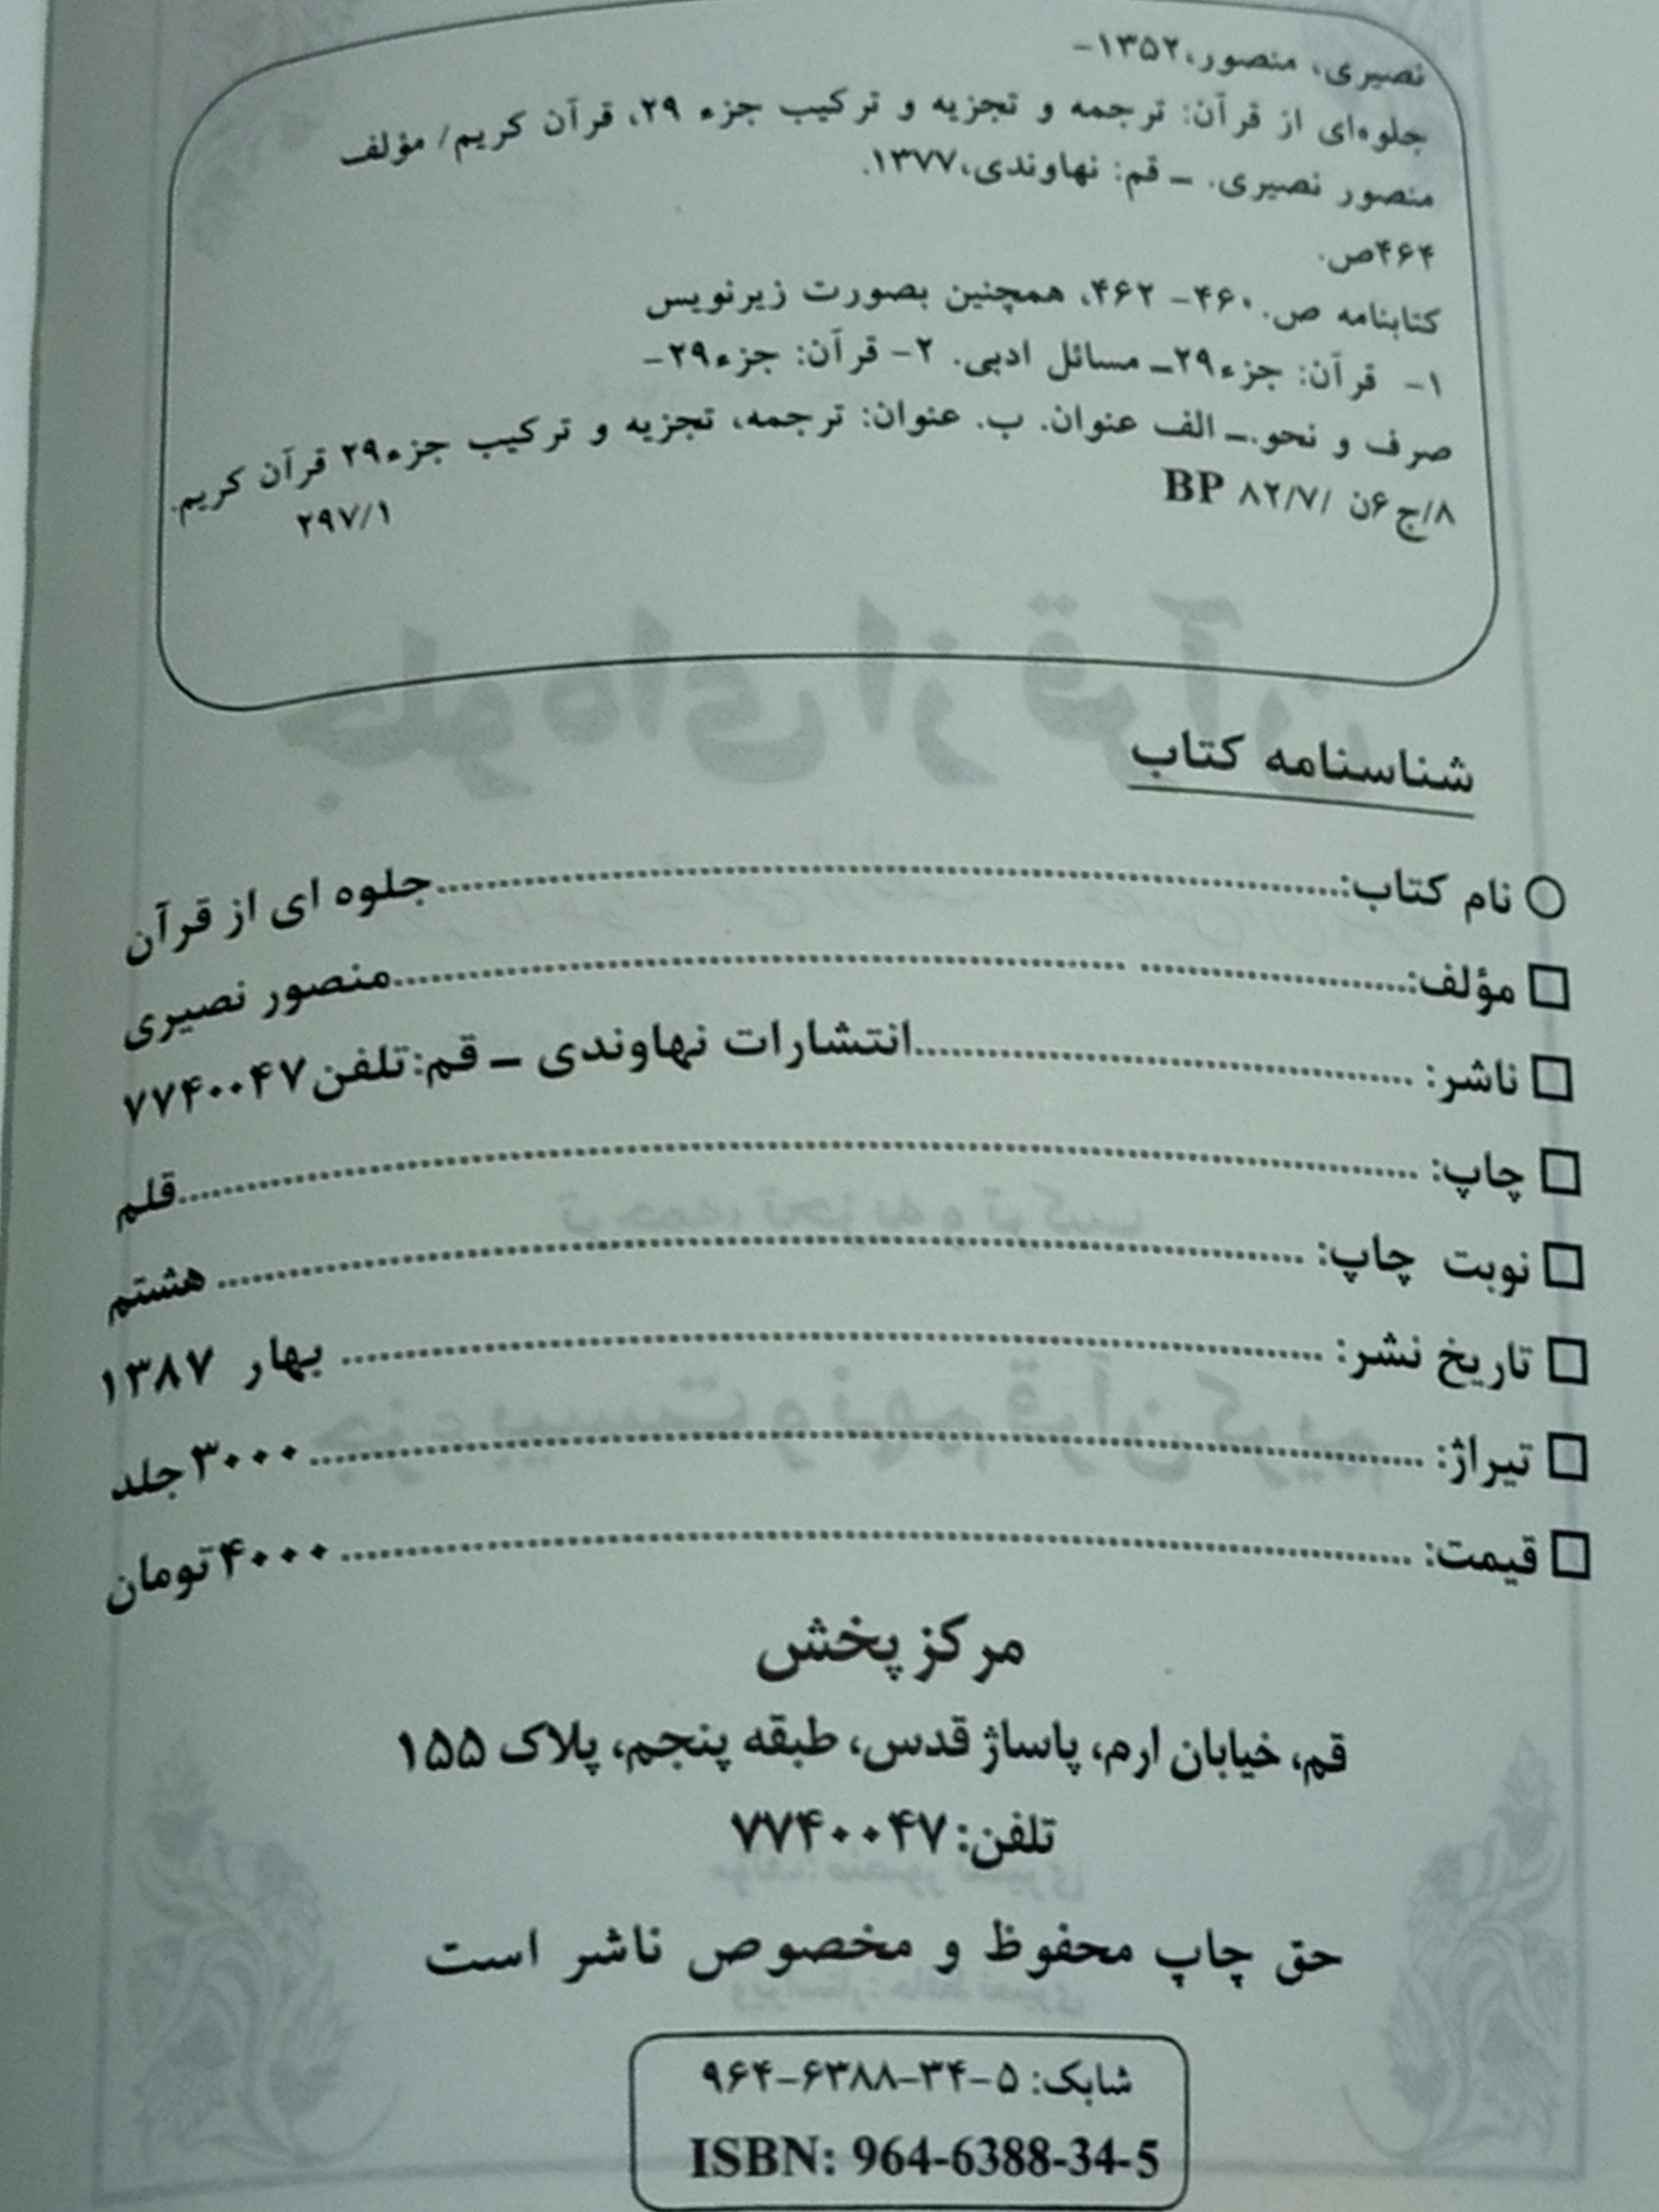 نصیری، منصور،۱۳۵۲-
جلوه‌ای از قرآن: ترجمه و تجزیه و ترکیب جزء ۲۹، قرآن کریم/ مؤلف
منصور نصیری. ـ قم: نهاوندی،۱۳۷۷.
۴۶۴ص.
کتابنامه ص. ۴۶۰- ۴۶۲، همچنین بصورت زیرنویس
۱- قرآن: جزء۲۹ـ مسائل ادبی. ۲- قرآن: جزء۲۹-
صرف و نحو.ـ الف عنوان. ب. عنوان: ترجمه، تجزیه و ترکیب جزء۲۹ قرآن کریم.
۸/ج۶ن /۸۲/۷ BP ۲۹۷/۱
شناسنامه کتاب
نام کتاب:..........جلوه ای از قرآن
مؤلف:..........منصور نصیری
ناشر: ..........انتشارات نهاوندی ـ قم:تلفن۷۷۴۰۰۴۷
چاپ: ..........قلم
نوبت چاپ: .......... هشتم
تاریخ نشر: .......... بهار ۱۳۸۷
تیراژ: ..........۳۰۰۰جلد
قیمت: ..........۴۰۰۰تومان
مرکز پخش
قم، خیابان ارم، پاساژ قدس، طبقه پنجم، پلاک ۱۵۵
تلفن:۷۷۴۰۰۴۷
حق چاپ محفوظ و مخصوص ناشر است
شابک: ۵-۳۴-۶۳۸۸-۹۶۴
ISBN: 964-6388-34-5